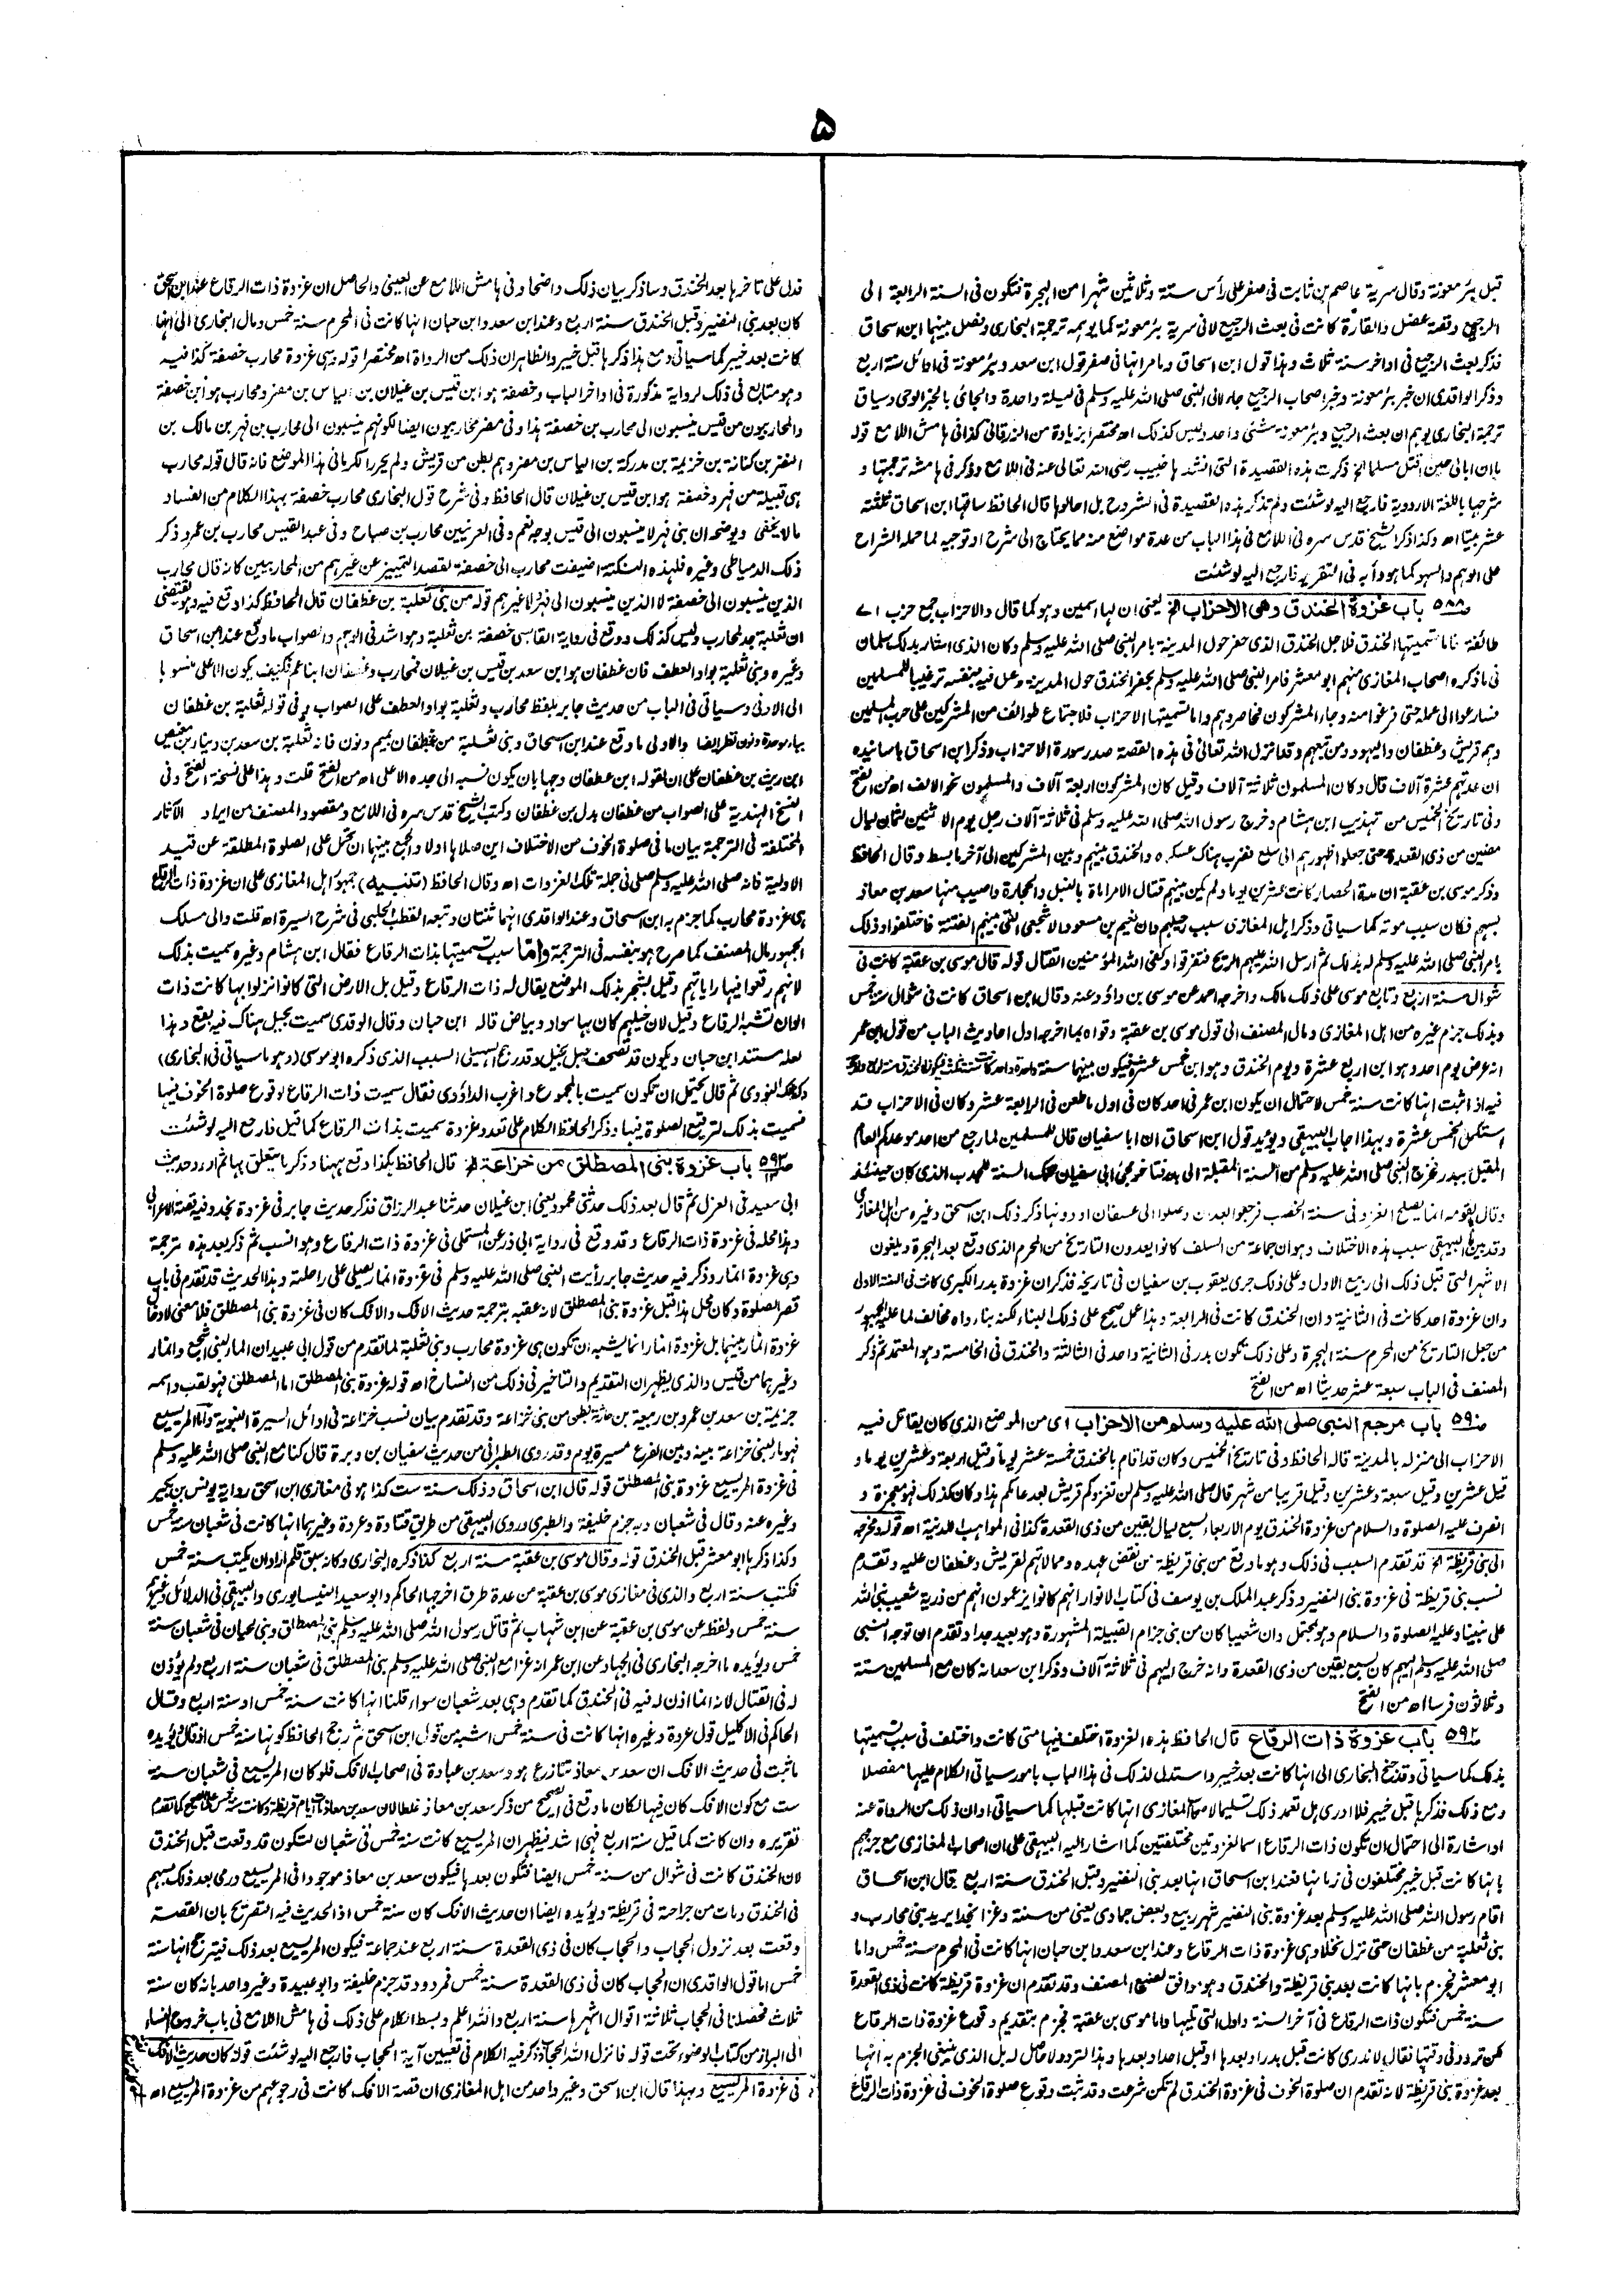 ۵
قبل بئر معونة وقال سرية عاصم بن ثابت فى صفر على رأس ستة وثلاثين شهرا من الهجرة فتكون فى السنة الرابعة الى
الرجيع وقصة عضل والقارة كانت فى بعث الرجيع لا فى سرية بئر معونة كما يوهمه ترجمة البخارى وفصل بينهما ابن اسحاق
فذكر بعث الرجيع فى اواخر سنة ثلاث وهذا قول ابن اسحاق وما مر انها فى صفر قول ابن سعد وبئر معونة فى اوائل سنة اربع
وذكر الواقدى ان خبر بئر معونة وخبر اصحاب الرجيع جاء الى النبى صلى الله عليه وسلم فى ليلة واحدة والجائى بالخبر الوحى وسياق
ترجمة البخارى يوهم ان بعث الرجيع وبئر معونة شئى واحد وليس كذلك اه مختصرا بزيادة من الزرقانى كذا فى هامش اللامع قوله
ما ان ابالى حين اقتل مسلما الخ ذكرت هذه القصيدة التى انشدها خبيب رضى الله تعالى عنه فى اللامع وذكر فى هامشه ترجمتها و
شرحها باللغة الاردوية فارجع اليه لو شئت ولم تذكر هذه القصيدة فى الشروح بل احالوها قال الحافظ ساقها ابن اسحاق ثلثة
عشر بيتا اه وكذا ذكر الشيخ قدس سره فى اللامع فى هذا الباب من عدة مواضع منه مما يحتاج الى شرح او توجيه لما حمله الشراح
على الوهم والسهو كما هو دأبه فى التقرير فارجع اليه لو شئت
ص۵۸۸ باب غزوة الخندق وهى الاحزاب الخ يعنى ان لها اسمين وهو كما قال والاحزاب جمع حزب اے
طائفة فاما تسميتها الخندق فلاجل الخندق الذى حفر حول المدينة بامر النبى صلى الله عليه وسلم وكان الذى اشار بذلك سلمان
فى ما ذكره اصحاب المغازى منهم ابو معشر فامر النبى صلى الله عليه وسلم بحفر الخندق حول المدينة وعمل فيه بنفسه ترغيبا للمسلمين
فسارعوا الى عمله حتى فرغوا منه وجاء المشركون فحاصروهم واما تسميتها الاحزاب فلاجتماع طوائف من المشركين على حرب المسلمين
وهم قريش وغطفان واليهود ومن تبعهم وقد انزل الله تعالىٰ فى هذه القصة صدر سورة الاحزاب وذكر ابن اسحاق باسانيده
ان عدتهم عشرة آلاف قال وكان المسلمون ثلاثة آلاف وقيل كان المشركون اربعة آلاف والمسلمون نحو الالف اه من الفتح
وفى تاريخ الخميس من تهذيب ابن هشام وخرج رسول الله صلى الله عليه وسلم فى ثلاثة آلاف رجل يوم الاثنين لثمان ليال
مضين من ذى القعدة حتى جعلوا ظهورهم الى سلع فضرب هناك عسكره والخندق بينهم وبين المشركين الى آخر ما بسط وقال الحافظ
وذكر موسى بن عقبة ان مدة الحصار كانت عشرين يوما ولم يكن بينهم قتال الا مراماة بالنبل والحجارة واصيب منها سعد بن معاذ
بسهم فكان سبب موته كما سياتى وذكر اهل المغازى سبب رحيلهم وان نعيم بن مسعود الاشجعى القى بينهم الفتنة فاختلفوا وذلك
بامر النبى صلى الله عليه وسلم له بذلك ثم ارسل الله عليهم الريح فتفرقوا وكفى الله المؤمنين القتال قوله قال موسى بن عقبة كانت فى
شوال سنة اربع وتابع موسى على ذلك مالك واخرجه احمد عن موسى بن داؤد وعنه وقال ابن اسحاق كانت فى شوال سنة خمس
وبذلك جزم غيره من اهل المغازى ومال المصنف الى قول موسى بن عقبة وقواه بما اخرجه اول احاديث الباب من قول ابن عمر
انه عرض يوم احد وهو ابن اربع عشرة ويوم الخندق وهو ابن خمس عشرة فيكون بينهما سنة واحدة واحد كانت سنة ثلث فيكون الخندق سنة اربع ولا حجة
فيه اذا ثبت انها كانت سنة خمس لاحتمال ان يكون ابن عمر فى احد كان فى اول ما طعن فى الرابعة عشر وكان فى الاحزاب قد
استكمل الخمس عشرة وبهذا اجاب البيهقى ويؤيد قول ابن اسحاق ان ابا سفيان قال للمسلمين لما رجع من احد موعدكم العام
المقبل ببدر فخرج النبى صلى الله عليه وسلم من السنة المقبلة الى بدر فتاخر مجئ ابى سفيان تلك السنة للجدب الذى كان حينئذ
وقال لقومه انما يصلح الغزو فى سنة الخصب فرجعوا بعد ان وصلوا الى عسفان او دونها ذكر ذلك ابن اسحق وغيره من اهل المغازى
وقد بين البيهقى سبب هذه الاختلاف وهو ان جماعة من السلف كانوا يعدون التاريخ من المحرم الذى وقع بعد الهجرة ويلغون
الاشهر التى قبل ذلك الى ربيع الاول وعلى ذلك جرى يعقوب بن سفيان فى تاريخه فذكر ان غزوة بدر الكبرى كانت فى السنة الاولى
وان غزوة احد كانت فى الثانية وان الخندق كانت فى الرابعة وهذا عمل صحيح على ذلك البناء لكنه بناء واه مخالف لما عليه الجمهور
من جعل التاريخ من المحرم سنة الهجرة وعلى ذلك تكون بدر فى الثانية واحد فى الثالثة والخندق فى الخامسة وهو المعتمد ثم ذكر
المصنف فى الباب سبعة عشر حديثا اه من الفتح
ص۵۹۰ باب مرجع النبى صلى الله عليه وسلم من الاحزاب اى من الموضع الذى كان يقاتل فيه
الاحزاب الى منزله بالمدينة قاله الحافظ وفى تاريخ الخميس وكان قد اقام بالخندق خمسة عشر يوما وقيل اربعة وعشرين يوما و
قيل عشرين وقيل سبعة وعشرين وقيل قريبا من شهر قال صلى الله عليه وسلم لن تغزوكم قريش بعد عامكم هذا وكان كذلك فهو معجزة و
انصرف عليه الصلوة والسلام من غزوة الخندق يوم الاربعاء لسبع ليال بقين من ذى القعدة كذا فى المواهب اللدنية اه قوله ومخرجه
الى بنى قريظة الخ قد تقدم السبب فى ذلك وهو ما وقع من بنى قريظة من نقض عهده وممالاتهم لقريش وغطفان عليه وتقدم
نسب بنى قريظة فى غزوة بنى النضير وذكر عبد الملك بن يوسف فى كتاب الانوار انهم كانوا يزعمون انهم من ذرية شعيب نبى الله
على نبينا وعليه الصلوة والسلام وهو محتمل وان شعيبا كان من بنى جزام القبيلة المشهورة وهو بعيد جدا وتقدم ان توجه النبى
صلى الله عليه وسلم اليهم كان لسبع بقين من ذى القعدة وانه خرج اليهم فى ثلاثة آلاف وذكر ابن سعد انه كان مع المسلمين ستة
وثلاثون فرسا اه من الفتح
ص۵۹۲ باب غزوة ذات الرقاع قال الحافظ هذه الغزوة اختلف فيها متى كانت واختلف فى سبب تسميتها
بذلك كما سياتى وقد جنح البخارى الى انها كانت بعد خيبر واستدل لذلك فى هذا الباب بامور سياتى الكلام عليها مفصلا
ومع ذلك فذكرها قبل خيبر فلا ادرى هل تعمد ذلك تسليما لاصحاب المغازى انها كانت قبلها كما سياتى او ان ذلك من الرواة عنه
او اشارة الى احتمال ان يكون ذات الرقاع اسما لغزوتين مختلفتين كما اشار اليه البيهقى على ان اصحاب المغازى مع جزمهم
بانها كانت قبل خيبر مختلفون فى زمانها فعند ابن اسحاق انها بعد بنى النضير وقبل الخندق سنة اربع قال ابن اسحاق
اقام رسول الله صلى الله عليه وسلم بعد غزوة بنى النضير شهر ربيع وبعض جمادى يعنى من سنة وغزا نجدا يريد بنى محارب و
بنى ثعلبة من غطفان حتى نزل نخلا وهى غزوة ذات الرقاع وعند ابن سعد وابن حبان انها كانت فى المحرم سنة خمس واما
ابو معشر فجزم بانها كانت بعد بنى قريظة والخندق وهو موافق لصنيع المصنف وقد تقدم ان غزوة قريظة كانت فى ذى القعدة
سنة خمس فتكون ذات الرقاع فى آخر السنة واول التى تليها واما موسى بن عقبة فجزم بتقديم وقوع غزوة ذات الرقاع
لكن تردد فى وقتها فقال لا ندرى كانت قبل بدر او بعدها او قبل احد او بعدها وهذا التردد لا حاصل له بل الذى ينبغى الجزم به انها
بعد غزوة بنى قريظة لانه تقدم ان صلوة الخوف فى غزوة الخندق لم تكن شرعت وقد ثبت وقوع صلوة الخوف فى غزوة ذات الرقاع
فدل على تاخرها بعد الخندق وساذكر بيان ذلك واضحا وفى هامش اللامع عن العينى والحاصل ان غزوة ذات الرقاع عند ابن اسحق
كان بعد بنى النضير وقبل الخندق سنة اربع وعند ابن سعد وابن حبان انها كانت فى المحرم سنة خمس ومال البخارى الى انها
كانت بعد خيبر كما سياتى ومع هذا ذكرها قبل خيبر والظاهر ان ذلك من الرواة اه مختصرا قوله وهى غزوة محارب خصفة كذا فيه
وهو متابع فى ذلك لرواية مذكورة فى اواخر الباب وخصفة هو ابن قيس بن عيلان بن الياس بن مضر ومحارب هو ابن خصفة
والمحاربيون من قيس ينسبون الى محارب بن خصفة هذا وفى مضر محاربيون ايضا لكونهم ينسبون الى محارب بن فهر بن مالك بن
النضر بن كنانة بن خزيمة بن مدركة بن الياس بن مضر وهم بطن من قريش ولم يحرر الكرمانى هذا الموضع فانه قال قوله محارب
هى قبيلة من فهر وخصفة هو ابن قيس بن عيلان قال الحافظ وفى شرح قول البخارى محارب خصفة بهذا الكلام من الفساد
ما لا يخفى ويوضحه ان بنى فهر لا ينسبون الى قيس بوجه نعم وفى العرنيين محارب بن صباح وفى عبد القيس محارب بن عمرو ذكر
ذلك الدمياطى وغيره فلهذه النكتة اضيفت محارب الى خصفة لقصد التمييز عن غيرهم من المحاربيين كانه قال محارب
الذين ينسبون الى خصفة لا الذين ينسبون الى فهر ولا غيرهم قوله من بنى ثعلبة بن غطفان قال الحافظ كذا وقع فيه وهو يقتضى
ان ثعلبة جد لمحارب وليس كذلك ووقع فى رواية القابسى خصفة بن ثعلبة وهو اشد فى الوهم والصواب ما وقع عند ابن اسحاق
وغيره وبنى ثعلبة بواو العطف فان غطفان هو ابن سعد بن قيس بن عيلان فمحارب وغطفان ابنا عم فكيف يكون الاعلى منسوبا
الى الادنى وسياتى فى الباب من حديث جابر بلفظ محارب وثعلبة بواو العطف على الصواب وفى قوله ثعلبة بن غطفان
بباء موحدة ونون نظر ايضا والاولى ما وقع عند ابن اسحاق وبنى ثعلبة من غطفان بميم ونون فانه ثعلبة بن سعد بن دينار بن بغيض
ابن ريث بن غطفان على ان لقوله ابن غطفان وجها بان يكون نسبه الى جده الاعلى اه من الفتح قلت وهذا على نسخة الفتح وفى
النسخ الهندية على الصواب من غطفان بدل بن غطفان وكتب الشيخ قدس سره فى اللامع ومقصود المصنف من ايراد الآثار
المختلفة فى الترجمة بيان ما فى صلوة الخوف من الاختلاف اين صلاها اولا والجمع بينهما ان تحمل على الصلوة المطلقة عن قيد
الاولية فانه صلى الله عليه وسلم صلى فى جملة تلك الغزوات اه وقال الحافظ (تنبيه) جمهور اهل المغازى على ان غزوة ذات الرقاع
هى غزوة محارب كما جزم به ابن اسحاق وعند الواقدى انهما ثنتان وتبعه القطب الحلبى فى شرح السيرة اه قلت والى مسلك
الجمهور مال المصنف كما صرح هو بنفسه فى الترجمة واما سبب تسميتها بذات الرقاع فقال ابن هشام وغيره سميت بذلك
لانهم رقعوا فيها راياتهم وقيل بشجر بذلك الموضع يقال له ذات الرقاع وقيل بل الارض التى كانوا نزلوا بها كانت ذات
الوان تشبه الرقاع وقيل لان خيلهم كان بها سواد وبياض قاله ابن حبان وقال الواقدى سميت بجبل هناك فيه بقع وهذا
لعله مستند ابن حبان ويكون قد تصحف جبل بخيل وقد رجح السهيلى السبب الذى ذكره ابو موسى (وهو ما سياتى فى البخارى)
وكذلك النووى ثم قال يحتمل ان تكون سميت بالمجموع واغرب الداؤدى فقال سميت ذات الرقاع لوقوع صلوة الخوف فيها
فسميت بذلك لترقيع الصلوة فيها وذكر الحافظ الكلام على تعدد غزوة سميت بذات الرقاع كما قيل فارجع اليه لو شئت
ص۵۹۳ باب غزوة بنى المصطلق من خزاعة الخ قال الحافظ هكذا وقع ههنا وذكر ما يتعلق بها ثم اورد حديث
ابى سعيد فى العزل ثم قال بعد ذلك حدثنى محمود يعنى ابن غيلان حدثنا عبد الرزاق فذكر حديث جابر فى غزوة نجد وفيه قصة الاعرابى
وهذا محله فى غزوة ذات الرقاع وقد وقع فى رواية ابى ذر عن المستملى فى غزوة ذات الرقاع وهو انسب ثم ذكر بعد هذه ترجمة
وهى غزوة انمار وذكر فيه حديث جابر رأيت النبى صلى الله عليه وسلم فى غزوة انمار يصلى على راحلته وهذا الحديث قد تقدم فى باب
قصر الصلوة وكان محل هذا قبل غزوة بنى المصطلق لانه عقبه بترجمة حديث الافك والافك كان فى غزوة بنى المصطلق فلا معنى لادخال
غزوة انمار بينهما بل غزوة انمار انما يشبه ان تكون هى غزوة محارب وبنى ثعلبة لما تقدم من قول ابى عبيد ان الماء لبنى اشجع وانمار
وغيرهما من قيس والذى يظهر ان التقديم والتاخير فى ذلك من النساخ اه قوله غزوة بنى المصطلق اما المصطلق فهو لقب واسمه
جزيمة بن سعد بن عمرو بن ربيعة بن حارثة بطن من بنى خزاعة وقد تقدم بيان نسب خزاعة فى اوائل السيرة النبوية واما المريسيع
فهو ماء لبنى خزاعة بينه وبين الفرع مسيرة يوم وقد روى الطبرانى من حديث سفيان بن وبرة قال كنا مع النبى صلى الله عليه وسلم
فى غزوة المريسيع غزوة بنى المصطلق قوله قال ابن اسحاق وذلك سنة ست كذا هو فى مغازى ابن اسحق رواية يونس بن بكير
وغيره عنه وقال فى شعبان وبه جزم خليفة والطبرى وروى البيهقى من طريق قتادة وعروة وغيرهما انها كانت فى شعبان سنة خمس
وكذا ذكرها ابو معشر قبل الخندق قوله وقال موسى بن عقبة سنة اربع كذا ذكره البخارى وكانه سبق قلم اراد ان يكتب سنة خمس
فكتب سنة اربع والذى فى مغازى موسى بن عقبة من عدة طرق اخرجها الحاكم وابو سعيد النيسابورى والبيهقى فى الدلائل وغيرهم
سنة خمس ولفظه عن موسى بن عقبة عن ابن شهاب ثم قاتل رسول الله صلى الله عليه وسلم بنى المصطلق وبنى لحيان فى شعبان سنة
خمس ويؤيده ما اخرجه البخارى فى الجهاد عن ابن عمر انه غزا مع النبى صلى الله عليه وسلم بنى المصطلق فى شعبان سنة اربع ولم يؤذن
له فى القتال لانه انما اذن له فيه فى الخندق كما تقدم وهى بعد شعبان سواء قلنا انها كانت سنة خمس او سنة اربع وقال
الحاكم فى الاكليل قول عروة وغيره انها كانت فى سنة خمس اشبه من قول ابن اسحق ثم رجح الحافظ كونها سنة خمس اذ قال ويؤيده
ما ثبت فى حديث الافك ان سعد بن معاذ تنازع هو وسعد بن عبادة فى اصحاب الافك فلو كان المريسيع فى شعبان سنة
ست مع كون الافك كان فيها لكان ما وقع فى الصحيح من ذكر سعد بن معاذ غلطا لان سعد بن معاذ مات ايام قريظة وكانت سنة خمس على الصحيح كما تقدم
تقريره وان كانت كما قيل سنة اربع فهى اشد فيظهر ان المريسيع كانت سنة خمس فى شعبان لتكون قد وقعت قبل الخندق
لان الخندق كانت فى شوال من سنة خمس ايضا فتكون بعدها فيكون سعد بن معاذ موجودا فى المريسيع ورمى بعد ذلك بسهم
فى الخندق ومات من جراحته فى قريظة ويؤيده ايضا ان حديث الافك كان سنة خمس اذ الحديث فيه التصريح بان القصة
وقعت بعد نزول الحجاب والحجاب كان فى ذى القعدة سنة اربع عند جماعة فيكون المريسيع بعد ذلك فيترجح انها سنة
خمس اما قول الواقدى ان الحجاب كان فى ذى القعدة سنة خمس فمردود وقد جزم خليفة وابو عبيدة وغير واحد بانه كان سنة
ثلاث فحصلنا فى الحجاب ثلاثة اقوال اشهرها سنة اربع والله اعلم وبسط الكلام على ذلك فى هامش اللامع فى باب خروج النساء
الى البراز من كتاب الوضوء تحت قوله فانزل الله الحجاب وذكر فيه الكلام فى تعيين آية الحجاب فارجع اليه لو شئت قوله كان حديث الافك
فى غزوة المريسيع وبهذا قال ابن اسحق وغير واحد من اهل المغازى ان قصة الافك كانت فى رجوعهم من غزوة المريسيع اه